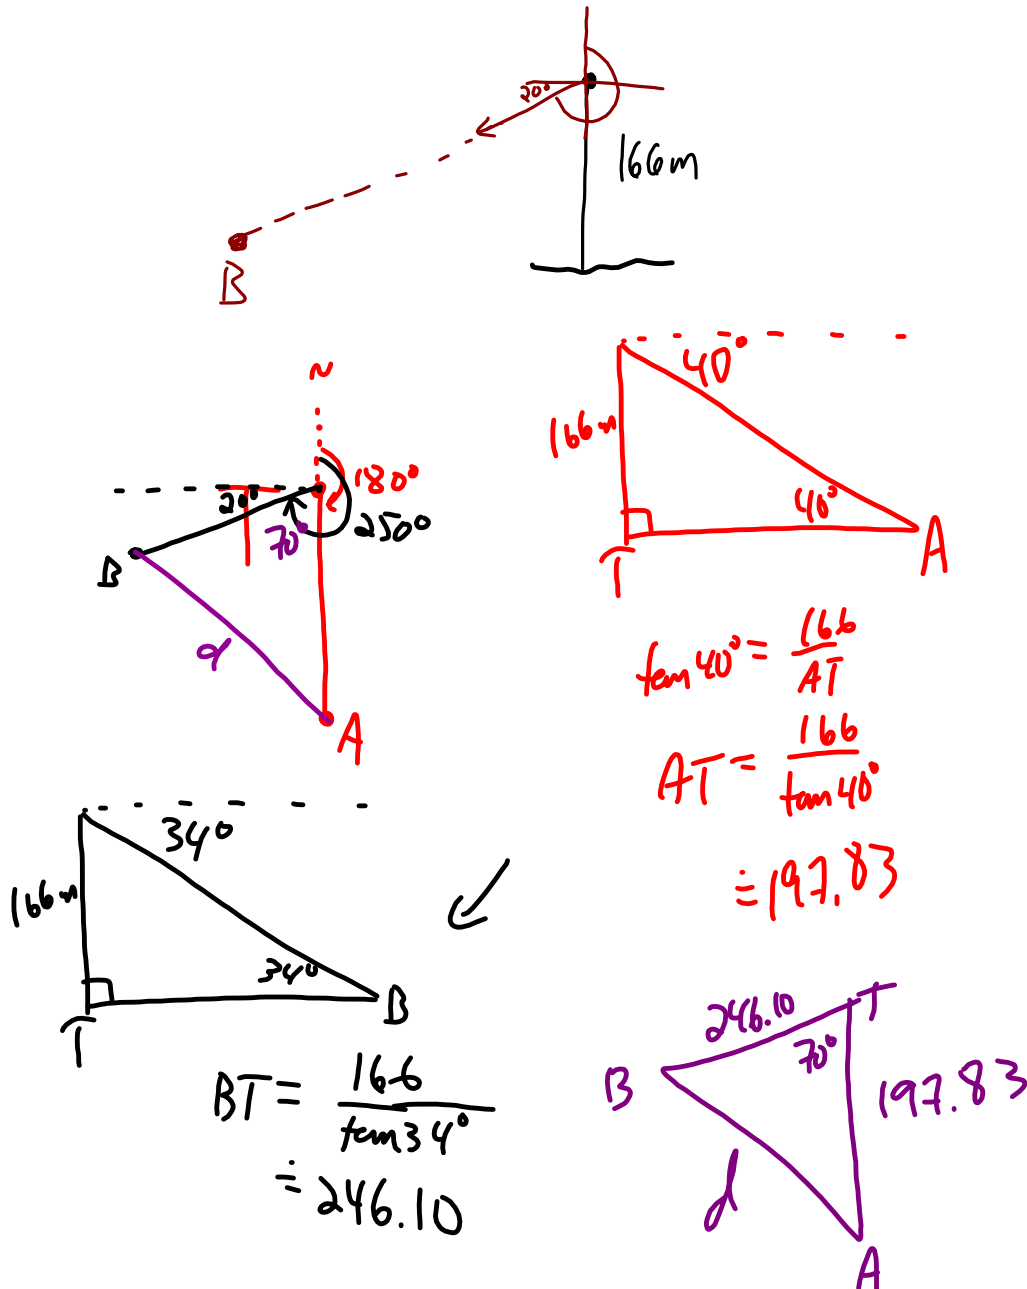 20°
166m
B
N
180°
20°
250°
70
B
d
A
40°
166m
40°
T
A
tan40° = 166/AT
AT = 166/tan40°
≐197.83
34°
166m
34°
T
B
BT = 166/tan34°
≐ 246.10
246.10
T
70°
B
197.83
d
A